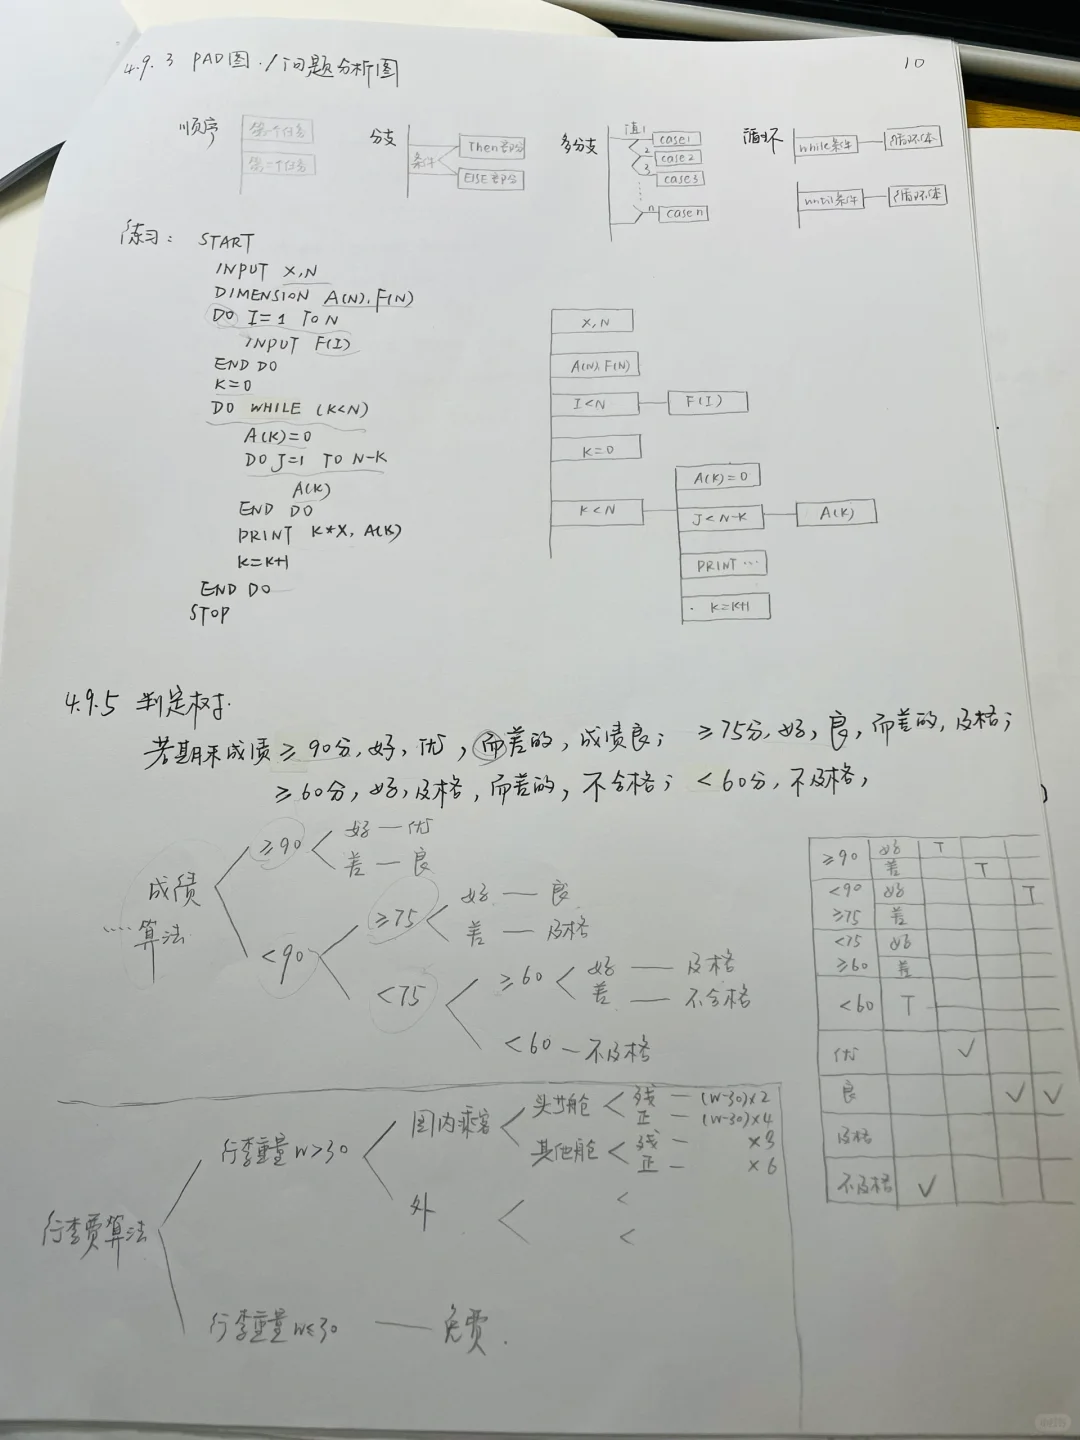 4.9.3 PAD图 / 问题分析图
10
顺序
第一个任务
第二个任务
分支
条件
Then部分
ELSE部分
多分支
值1
2
3
n
case1
case2
case3
case n
循环
while条件
循环体
until条件
循环体
练习：
START
INPUT X,N
DIMENSION A(N),F(N)
DO I=1 TO N
INPUT F(I)
END DO
K=0
DO WHILE (K<N)
A(K)=0
DO J=1 TO N-K
A(K)
END DO
PRINT K*X, A(K)
K=K+1
END DO
STOP
X,N
A(N),F(N)
I<N
F(I)
K=0
K<N
A(K)=0
J<N-K
A(K)
PRINT …
K=K+1
4.9.5 判定树.
若期末成绩≥90分,好,优,而差的,成绩良; ≥75分,好,良,而差的,及格;
≥60分,好,及格,而差的,不合格; <60分,不及格,
成绩
……算法
≥90
好 — 优
差 — 良
<90
≥75
好 — 良
差 — 及格
<75
≥60
好 — 及格
差 — 不合格
<60 — 不及格
≥90 好 T
差 T
<90 好 T
≥75 差
<75 好
≥60 差
<60 T
优 ✓
良 ✓ ✓
及格
不及格 ✓
行李费算法
行李重量W>30
国内乘客
头等舱
残 — (W-30)×2
正 — (W-30)×4
其他舱
残 — ×3
正 — ×6
外
行李重量W≤30 — 免费.